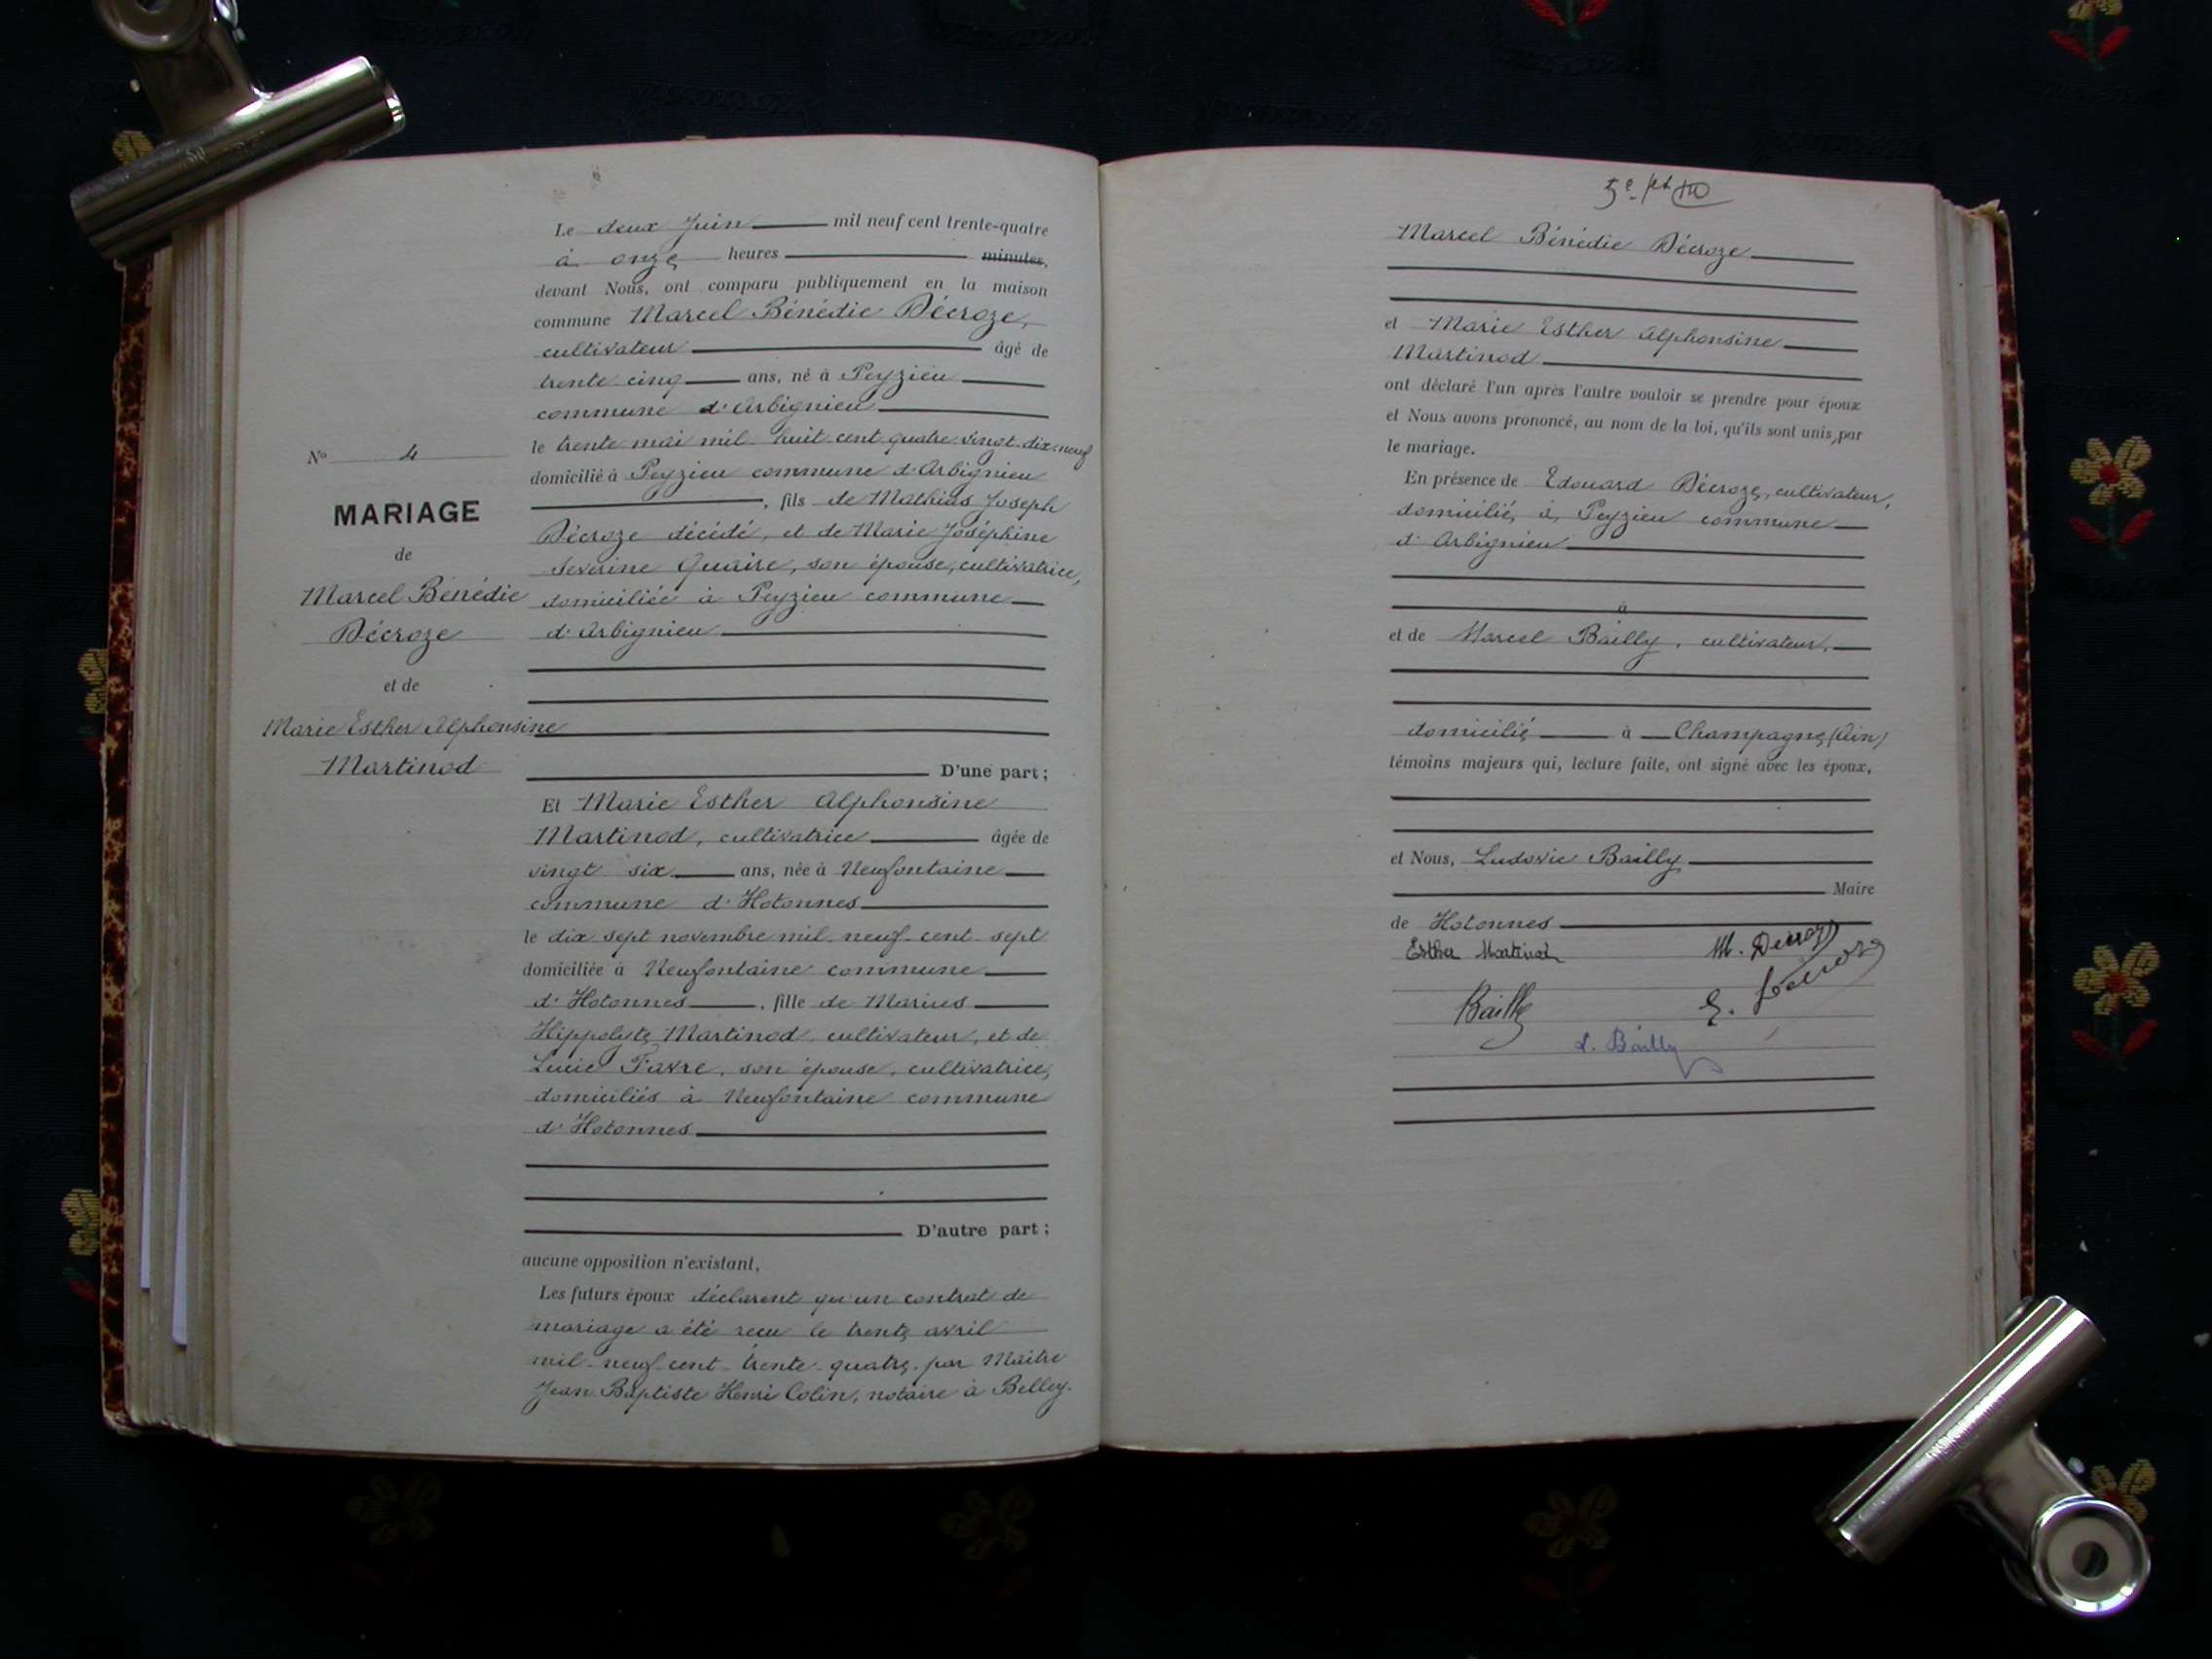 Le deux Juin mil neuf cent trente-quatre
à onze heures minutes,
devant Nous, ont comparu publiquement en la maison
commune Marcel Bénédie Décroze,
cultivateur âgé de
trente cinq ans, né à Peyzieu
commune d'Arbignieu
le trente mai mil huit cent quatre vingt dix-neuf
domicilié à Peyzieu commune d'Arbignieu
, fils de Mathias Joseph
Décroze décédé, et de Marie Joséphine
Séverine Quaire, son épouse, cultivatrice,
domiciliée à Peyzieu commune
d'Arbignieu
D'une part ;
Et Marie Esther Alphonsine
Martinod, cultivatrice âgée de
vingt six ans, née à Neufontaine
commune d'Hotonnes
le dix sept novembre mil neuf cent sept
domiciliée à Neufontaine commune
d'Hotonnes, fille de Marius
Hippolyte Martinod, cultivateur, et de
Lucie Favre, son épouse, cultivatrice,
domiciliés à Neufontaine commune
d'Hotonnes
D'autre part ;
aucune opposition n'existant,
Les futurs époux déclarent qu'un contrat de
mariage a été reçu le trente avril
mil neuf cent trente quatre par Maître
Jean Baptiste Henri Colin, notaire à Belley.
No 4
MARIAGE
de
Marcel Bénédie
Décroze
et de
Marie Esther Alphonsine
Martinod
Marcel Bénédie Décroze
et Marie Esther Alphonsine
Martinod
ont déclaré l'un après l'autre vouloir se prendre pour époux
et Nous avons prononcé, au nom de la loi, qu'ils sont unis par
le mariage.
En présence de Edouard Décroze, cultivateur,
domicilié à Peyzieu commune
d'Arbignieu
à
et de Marcel Bailly, cultivateur,
domicilié à Champagne (Ain)
témoins majeurs qui, lecture faite, ont signé avec les époux,
et Nous, Ludovic Bailly
Maire
de Hotonnes
Esther Martinod M. Décroze
Bailly E. Décroze
L. Bailly